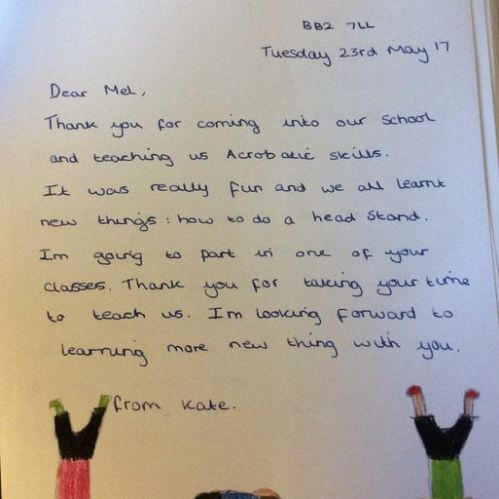 BB2 7LL
Tuesday 23rd May 17
Dear Mel,
Thank you for coming into our school
and teaching us Acrobatic skills.
It was really fun and we all learnt
new things: how to do a head stand.
Im going to part in one of your
classes. Thank you for taking your time
to teach us. Im looking forward to
learning more new thing with you.
from Kate.